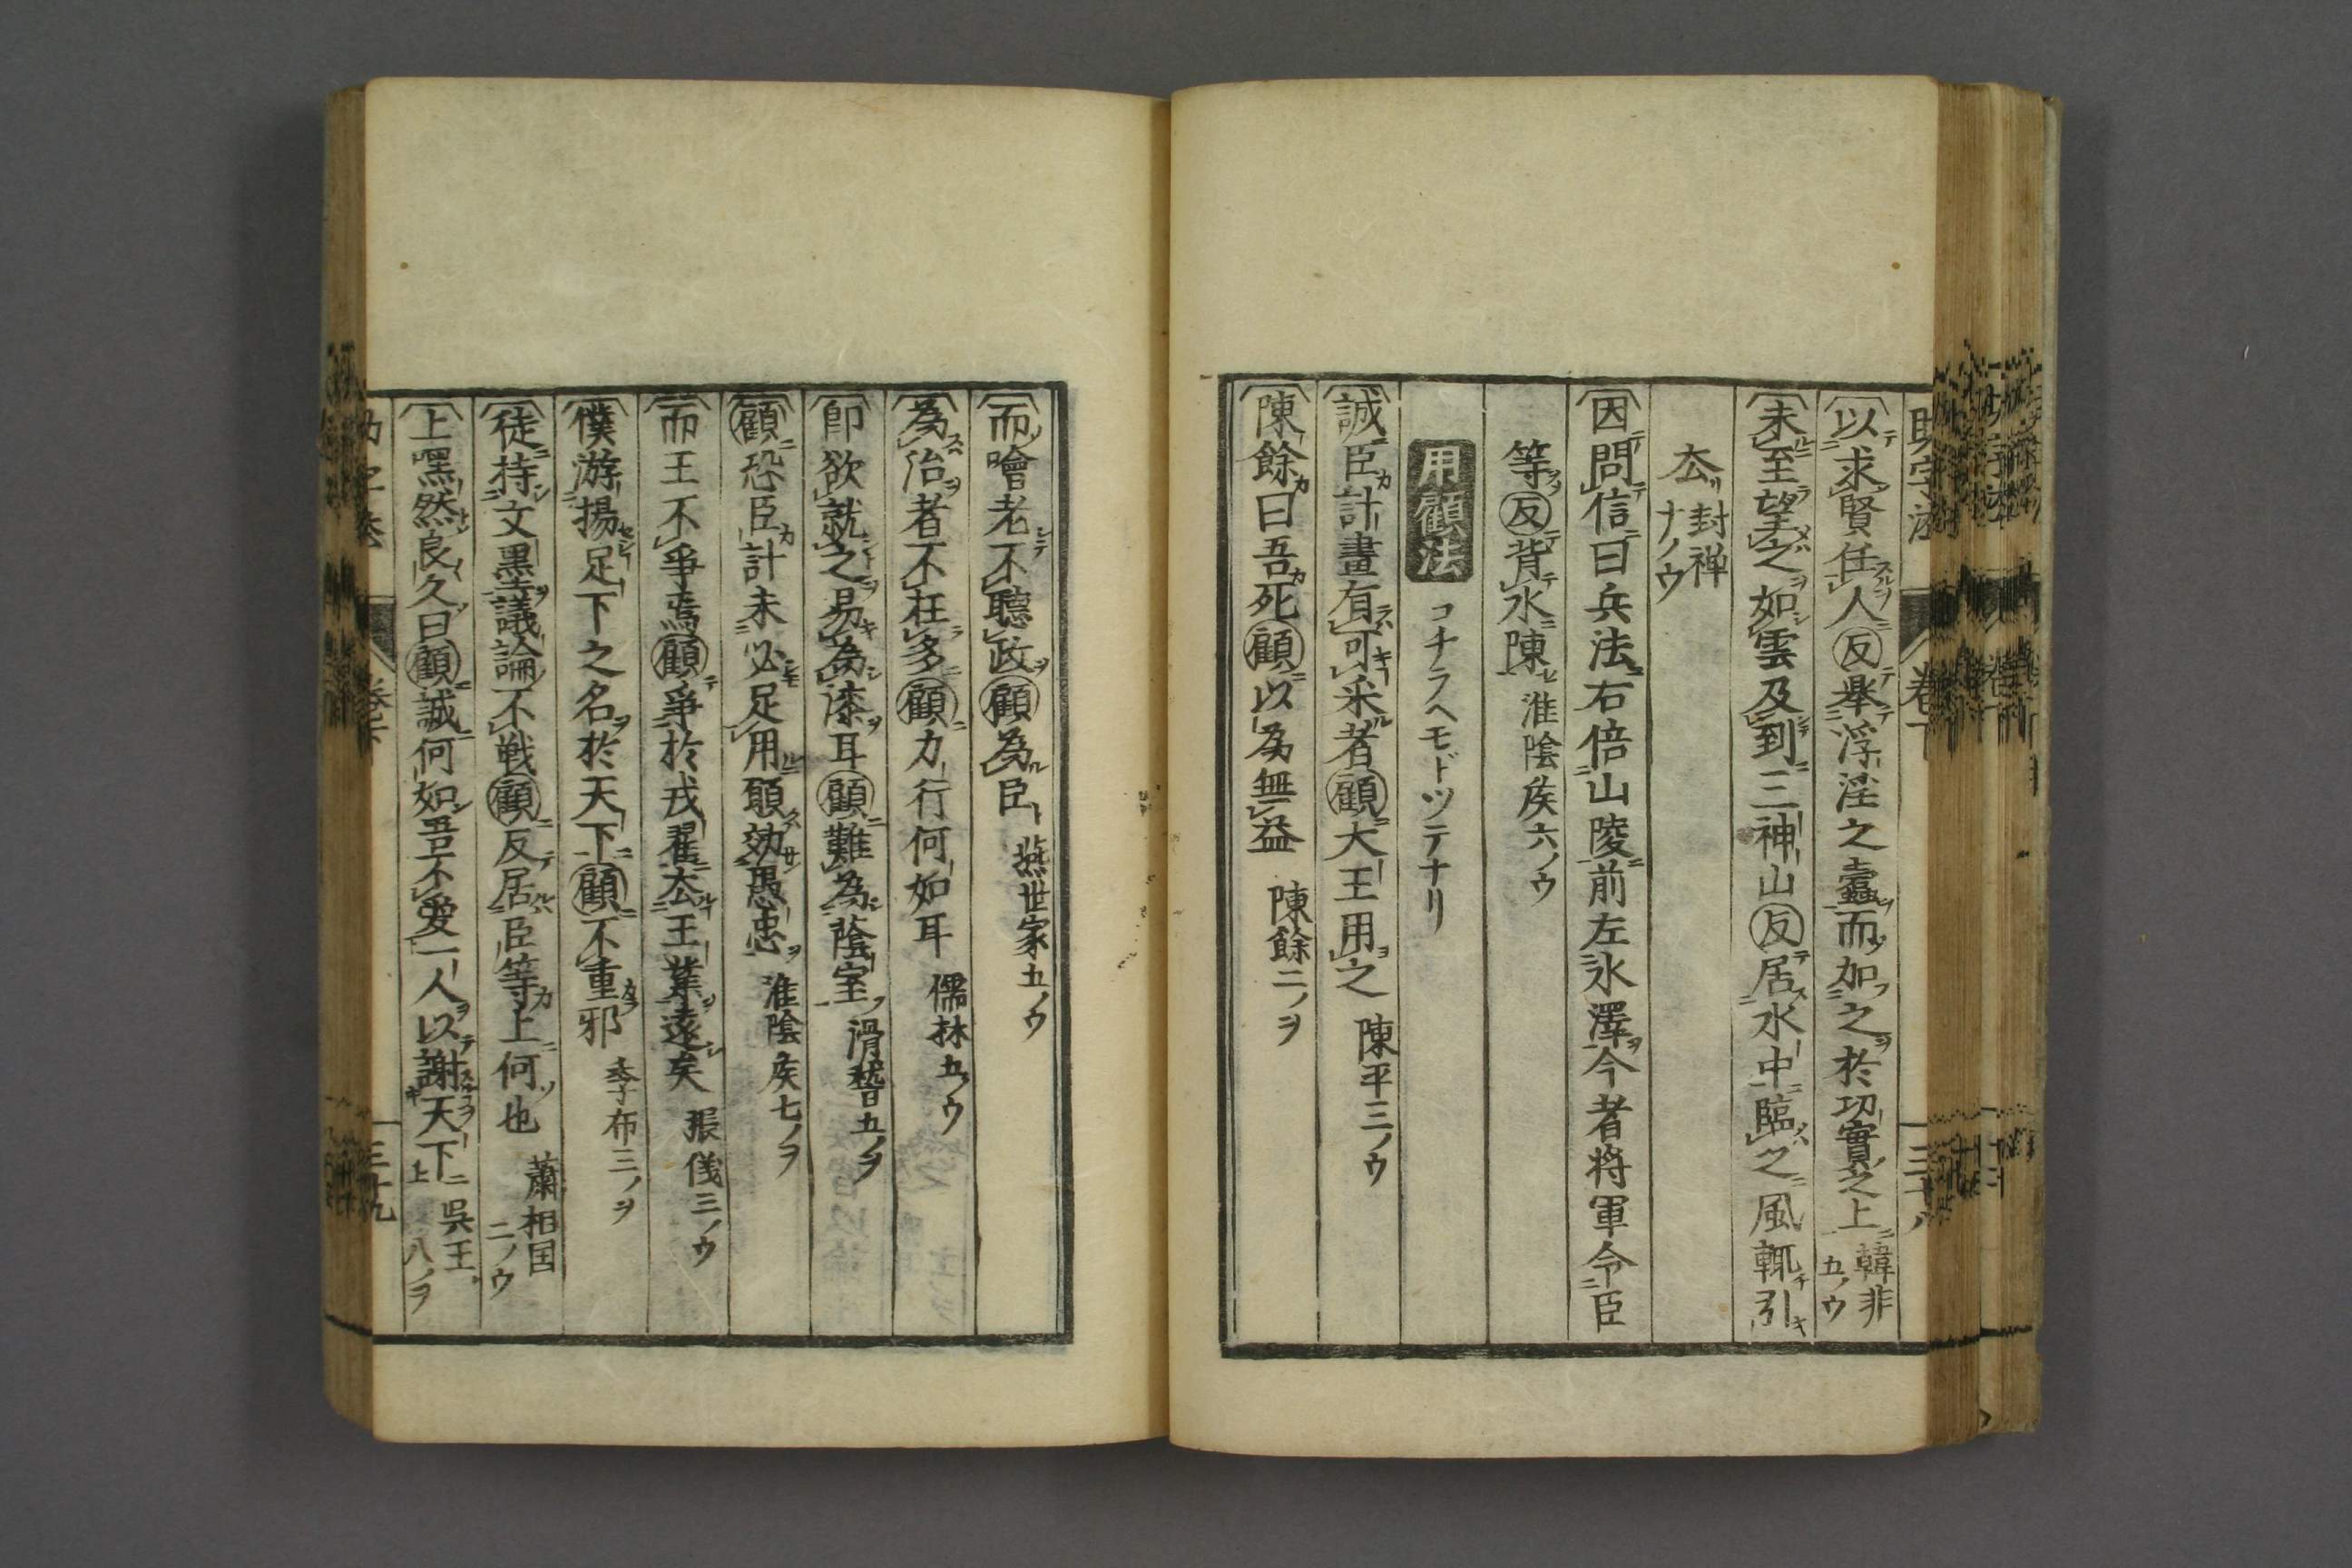 助字法 卷下 三十八
以求賢任人反舉浮淫之蠹而加之於功實之上 韓非五ノウ
未至望之如雲及到三神山反居水中臨之風輒引
去 封禅ナノウ
因問信曰兵法右倍山陵前左水澤今者将軍令臣
等反背水陳 淮陰侯六ノウ
用顧法 コチラヘモドツテナリ
誠臣計畫有可采者顧大王用之 陳平三ノウ
陳餘曰吾死顧以為無益 陳餘二ノヲ
而噲老不聽政顧為臣 燕世家五ノウ
為治者不在多顧力行何如耳 儒林五ノウ
即欲就之易為漆耳顧難為蔭室 滑稽五ノヲ
顧恐臣計未必足用願効愚忠 淮陰侯七ノヲ
而王不爭焉顧爭於戎翟去王業遠矣 張儀三ノウ
僕游揚足下之名於天下顧不重邪 季布三ノヲ
徒持文墨議論不戦顧反居臣等上何也 蕭相国二ノウ
上嘿然良久曰顧誠何如吾不愛一人以謝天下 呉王八ノヲ
助字法 卷下 三十九